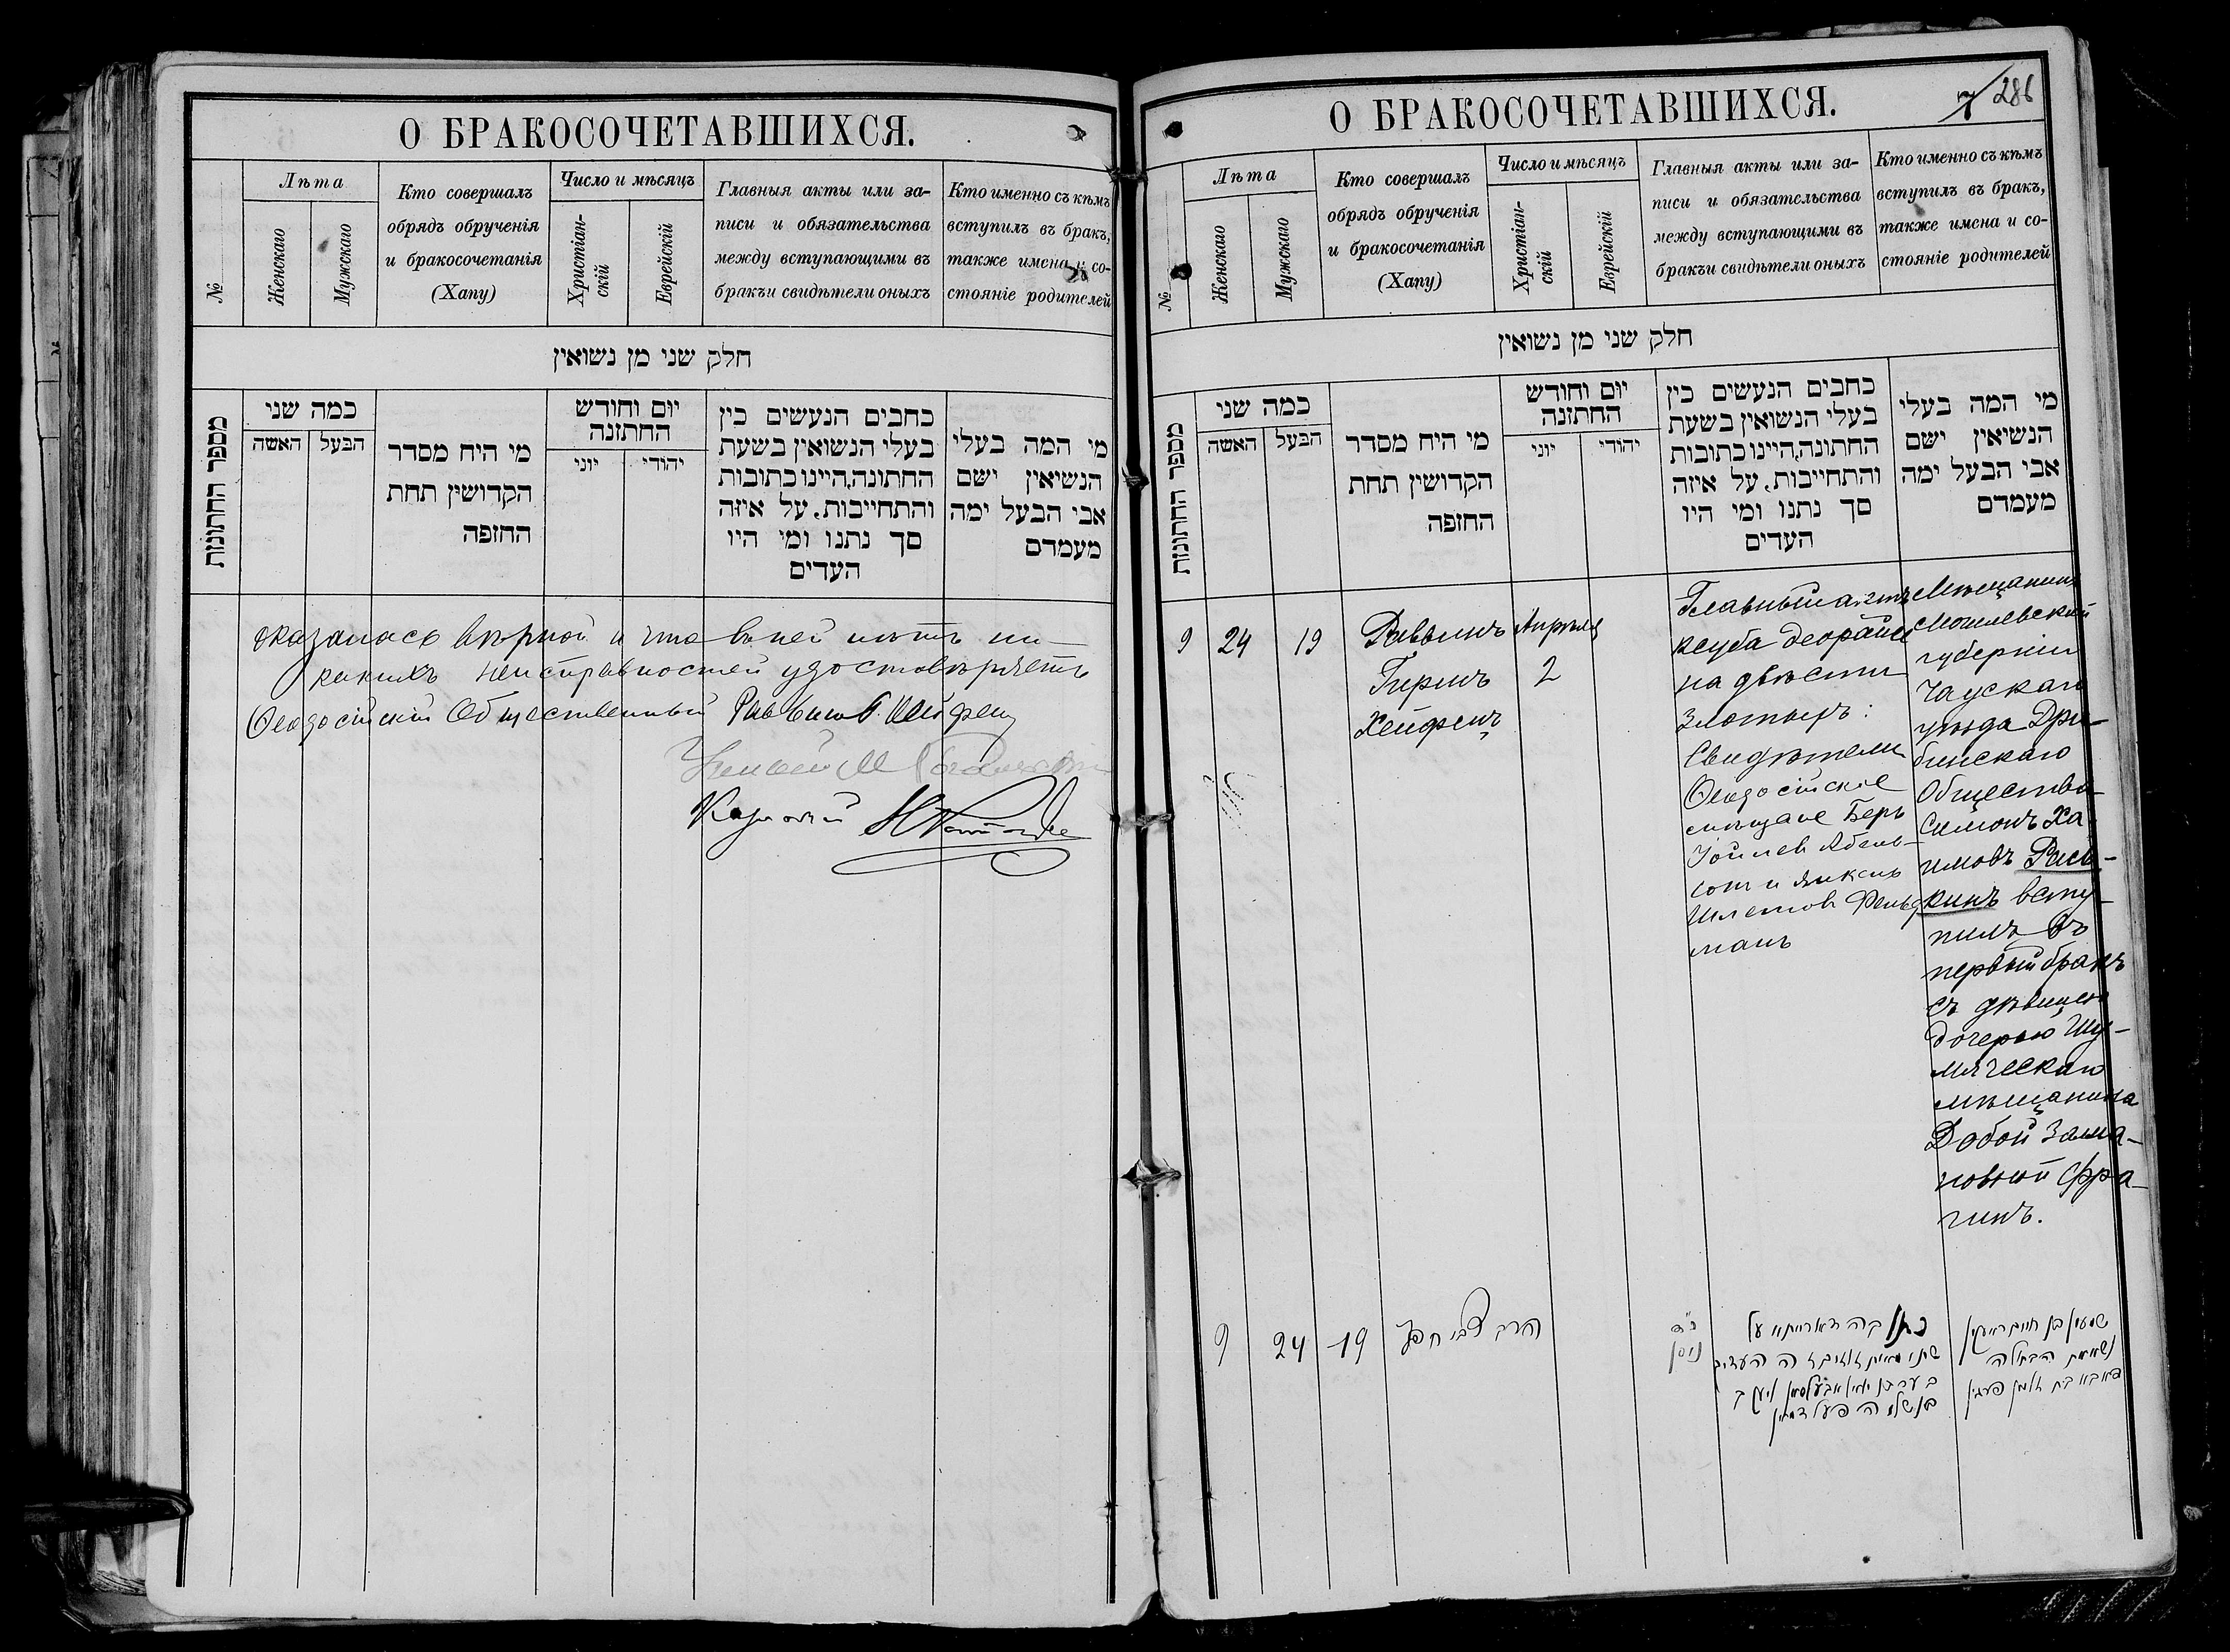 О БРАКОСОЧЕТАВШИХСЯ.
№
Лѣта
Женскаго
Мужскаго
Кто совершалъ
обрядъ обрученія
и бракосочетанія
(Хапу)
Число и мѣсяцъ
Христіан-
скій
Еврейскій
Главныя акты или за-
писи и обязательства
между вступающими въ
бракъ и свидѣтели оныхъ
Кто именно съ кѣмъ
вступилъ въ бракъ,
также имена и со-
стояніе родителей
חלק שני מן נשואין
מספר החתונות
כמה שני
האשה
הבעל
מי היח מסדר
הקדושין תחת
החזפה
יום וחודש
החתונה
יוני
יהודי
כחבים הנעשים כין
בעלי הנשואין בשעת
החתונה,היינו כתובות
והתחייבות, על איזה
סך נתנו ומי היו
העדים
מי המה בעלי
הנשיאין ישם
אבי הבעל ימה
מעמדם
оказалась вѣрной и что въ ней нѣтъ ни-
какихъ неисправностей удостовѣряетъ
Ѳеодосійскій Общественный Раввинъ
Казначей
О БРАКОСОЧЕТАВШИХСЯ.
286
№
Лѣта
Женскаго
Мужскаго
Кто совершалъ
обрядъ обрученія
и бракосочетанія
(Хапу)
Число и мѣсяцъ
Христіан-
скій
Еврейскій
Главныя акты или за-
писи и обязательства
между вступающими въ
бракъ и свидѣтели оныхъ
Кто именно съ кѣмъ
вступилъ въ бракъ,
также имена и со-
стояніе родителей
חלק שני מן נשואין
מספר החתונות
כמה שני
האשה
הבעל
מי היח מסדר
הקדושין תחת
החזפה
יום וחודש
החתזנה
יוני
יהודי
כחבים הנעשים כין
בעלי הנשואין בשעת
החתונה,היינו כתובות
והתחייבות, על איזה
סך נתנו ומי היו
העדים
מי המה בעלי
הנשיאין ישם
אבי הבעל ימה
מעמדם
9
24
19
Раввинъ
Гиршъ
Хейфецъ
Апрѣля
2
Главный актъ
ксуба деорайсе
на двѣсти
Злотыхъ:
Свидѣтели
Ѳеодосійскіе
мѣщане Беръ
Іойлев Абель-
сонъ и Янкель
Шлемов Фельд
манъ
Мѣщанинъ
Могилевской
губерніи
Чаускаго
уѣзда Дри-
бинскаго
Общества
Симонъ Ха-
имовъ Рась-
кинъ всту-
пилъ въ
первый бракъ
съ дѣвицею
дочерью Шу-
мяческаго
мѣщанина
Добой Залма-
новной Фра-
гинъ.
9
24
19
הרב צבי חפץ
כ״ד
ניסן